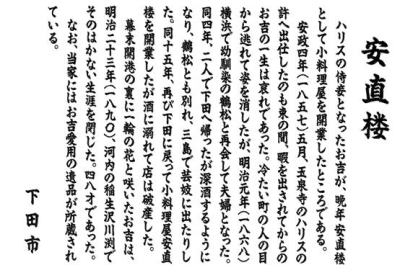 安直楼
ハリスの侍妾となったお吉が、晩年 安直楼
として小料理屋を開業したところである。
安政四年(一八五七)五月、玉泉寺のハリスの
許へ出仕したのも束の間、暇を出されてからの
お吉の一生は哀れであった。冷たい町の人の目
から逃れて姿を消したが、明治元年(一八六八)
横浜で幼馴染の鶴松と再会して夫婦となった。
同四年、二人で下田へ帰ったが深酒するように
なり、鶴松とも別れ、三島で芸妓に出たりし
た。同十五年、再び下田に戻って小料理屋安直
楼を開業したが酒に溺れて店は破産した。
幕末開港の裏に一輪の花と咲いたお吉は、
明治二十三年(一八九〇)、河内の稲生沢川渕で
そのはかない生涯を閉じた。四八才であった。
なお、当家にはお吉愛用の遺品が所蔵され
ている。
下田市